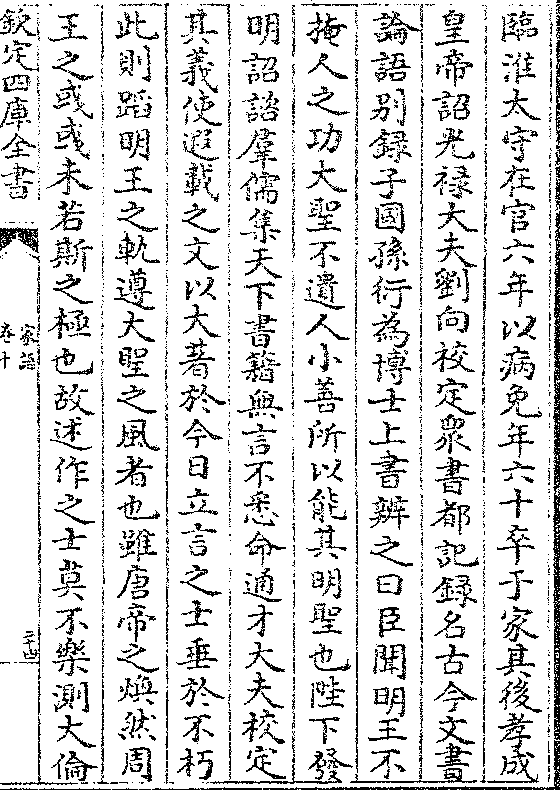 臨淮太守在官六年以病免年六十卒于家其後孝成
皇帝詔光祿大夫劉向校定衆書都記錄名古今文書
論語别録子國孫衍為博士上書辨之曰臣聞明王不
掩人之功大聖不遺人小善所以能其明聖也陛下發
明詔諮羣儒集天下書籍無言不悉命通才大夫校定
其義使遐載之文以大著於今日立言之士垂於不朽
此則蹈明王之軌遵大聖之風者也雖唐帝之煥然周
王之彧彧未若斯之極也故述作之士莫不樂測大倫
欽定四庫全書
家語
卷十
三十四